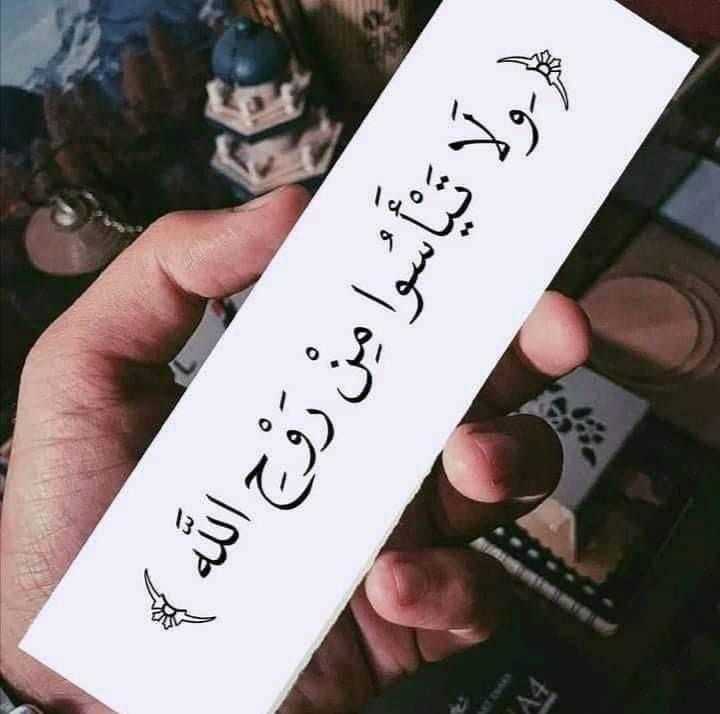 ﴿وَلَا تَيْأَسُوا مِنْ رَوْحِ اللَّهِ﴾
A4